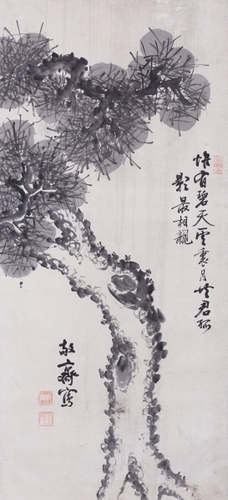 惟有碧天雲裏月共君孤
影最相親
敬齋寫